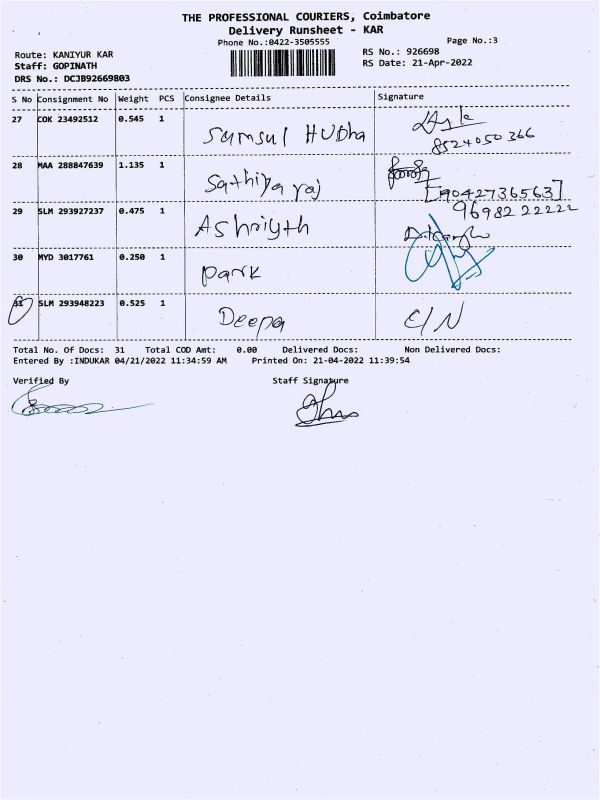 THE PROFESSIONAL COURIERS, Coimbatore
Delivery Runsheet - KAR
Phone No.:0422-3505555
Page No.:3
Route: KANIYUR KAR
RS No.: 926698
Staff: GOPINATH
RS Date: 21-Apr-2022
DRS No.: DCJB92669803
S No Consignment No Weight PCS Consignee Details Signature
27 COK 23492512 0.545 1 Samsul HUDha
8524050366
28 MAA 288847639 1.135 1 Sathiya raj
[9042736563]
29 SLM 293927237 0.475 1 Ashriyth 96982 22222
30 MYD 3017761 0.250 1 park
31 SLM 293948223 0.525 1 Deepa C/N
Total No. Of Docs: 31 Total COD Amt: 0.00 Delivered Docs: Non Delivered Docs:
Entered By :INDUKAR 04/21/2022 11:34:59 AM Printed On: 21-04-2022 11:39:54
Verified By Staff Signature